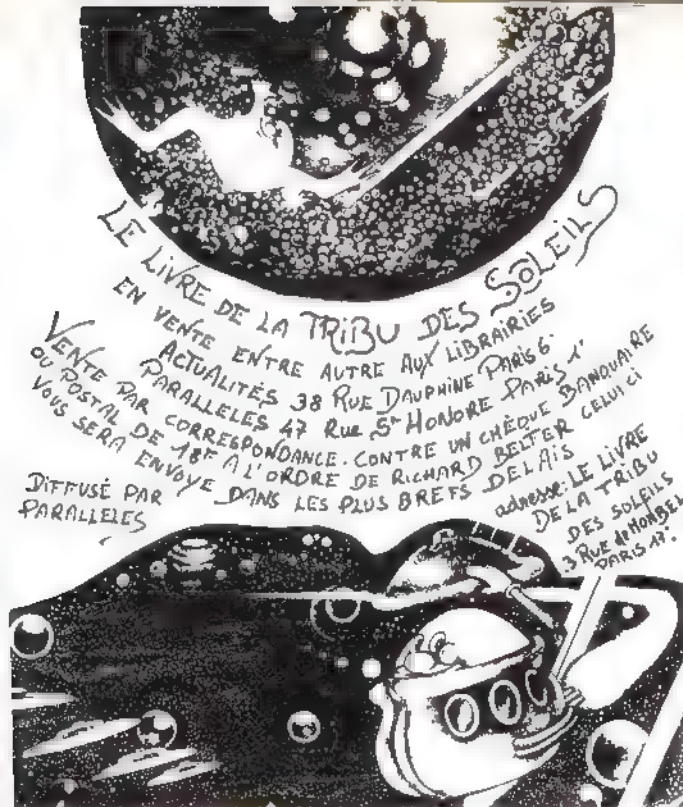 LE LIVRE DE LA TRIBU DES SOLEILS
EN VENTE ENTRE AUTRE AUX LIBRAIRIES
ACTUALITÉS 38 RUE DAUPHINE PARIS 6°
PARALLELES 47 RUE St HONORE PARIS 1°
VENTE PAR CORRESPONDANCE. CONTRE UN CHÈQUE BANQUAIRE
OU POSTAL DE 18F A L'ORDRE DE RICHARD BELTER CELUI CI
VOUS SERA ENVOYE DANS LES PLUS BREFS DELAIS
DIFFUSÉ PAR
PARALLELES
adresse: LE LIVRE
DE LA TRIBU
DES SOLEILS
3 RUE de MONBEL
PARIS 17°.